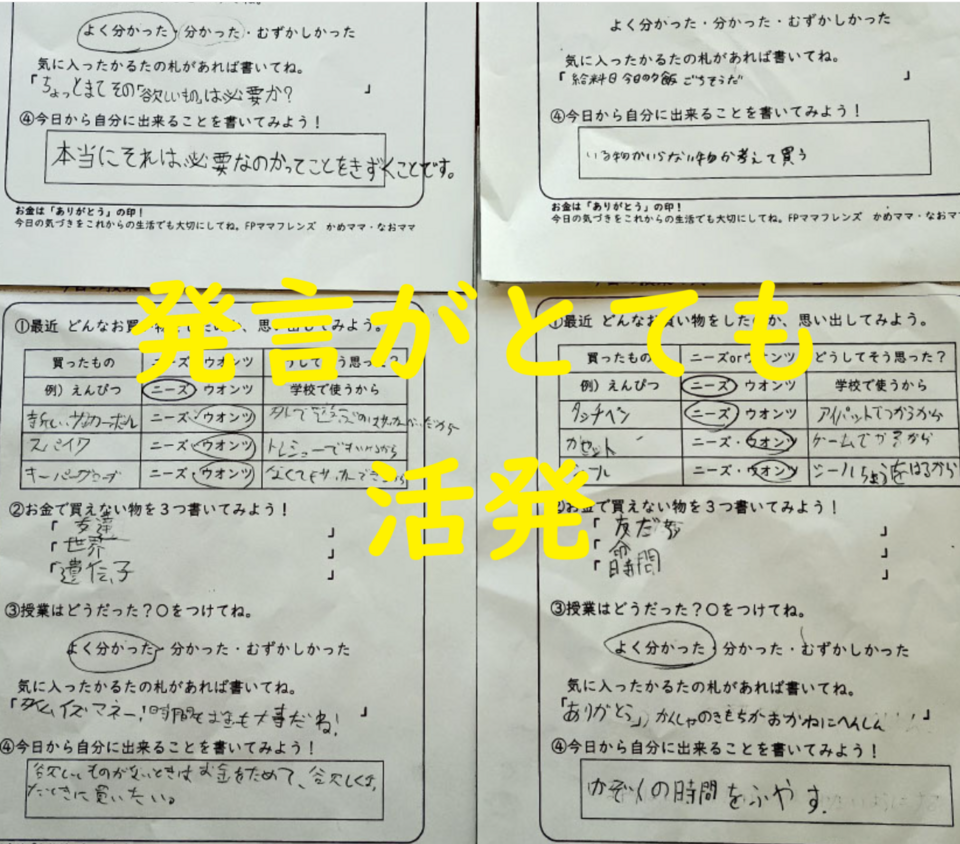 よく分かった・分かった・むずかしかった
気に入ったかるたの札があれば書いてね。
「ちょっとまてその「欲しいもの」は必要か?」
④今日から自分に出来ることを書いてみよう!
本当にそれは、必要なのかってことをきずくことです。
お金は「ありがとう」の印!
今日の気づきをこれからの生活でも大切にしてね。FPママフレンズ かめママ・なおママ
よく分かった・分かった・むずかしかった
気に入ったかるたの札があれば書いてね。
「給料日今日の夕飯ごちそうだ」
④今日から自分に出来ることを書いてみよう!
いる物かいらない物か考えて買う
お金は「ありがとう」の印!
今日の気づきをこれからの生活でも大切にしてね。FPママフレンズ かめママ・なおママ
発言がとても
活発
①最近 どんなお買い物をしたのか、思い出してみよう。
買ったもの ニーズ ウオンツ うしてそう思った?
例)えんぴつ ニーズ・ウオンツ 学校で使うから
新しいサッカーボール ニーズ・ウオンツ
スパイク ニーズ・ウオンツ トレシューで
キーパーグローブ ニーズ・ウオンツ なくてもサッカーできるから
②お金で買えない物を3つ書いてみよう!
「友達」
「世界」
「遺伝子」
③授業はどうだった?〇をつけてね。
よく分かった・分かった・むずかしかった
気に入ったかるたの札があれば書いてね。
「タイムイズマネー!時間もお金も大事だね!」
④今日から自分に出来ることを書いてみよう!
欲しいものがないときはお金をためて、欲しくなっ
たときに買いたい。
①最近 どんなお買い物をしたのか、思い出してみよう。
買ったもの ニーズorウオンツ どうしてそう思った?
例)えんぴつ ニーズ・ウオンツ 学校で使うから
タッチペン ニーズ・ウオンツ アイパットでつかるから
カセット ニーズ・ウオンツ ゲームで
シール ニーズ・ウオンツ シールちょうをはるから
②お金で買えない物を3つ書いてみよう!
「友だち」
「命」
「時間」
③授業はどうだった?〇をつけてね。
よく分かった・分かった・むずかしかった
気に入ったかるたの札があれば書いてね。
「ありがとう」かんしゃのきもちがおかねにへんしん」
④今日から自分に出来ることを書いてみよう!
かぞくの時間をふやす.